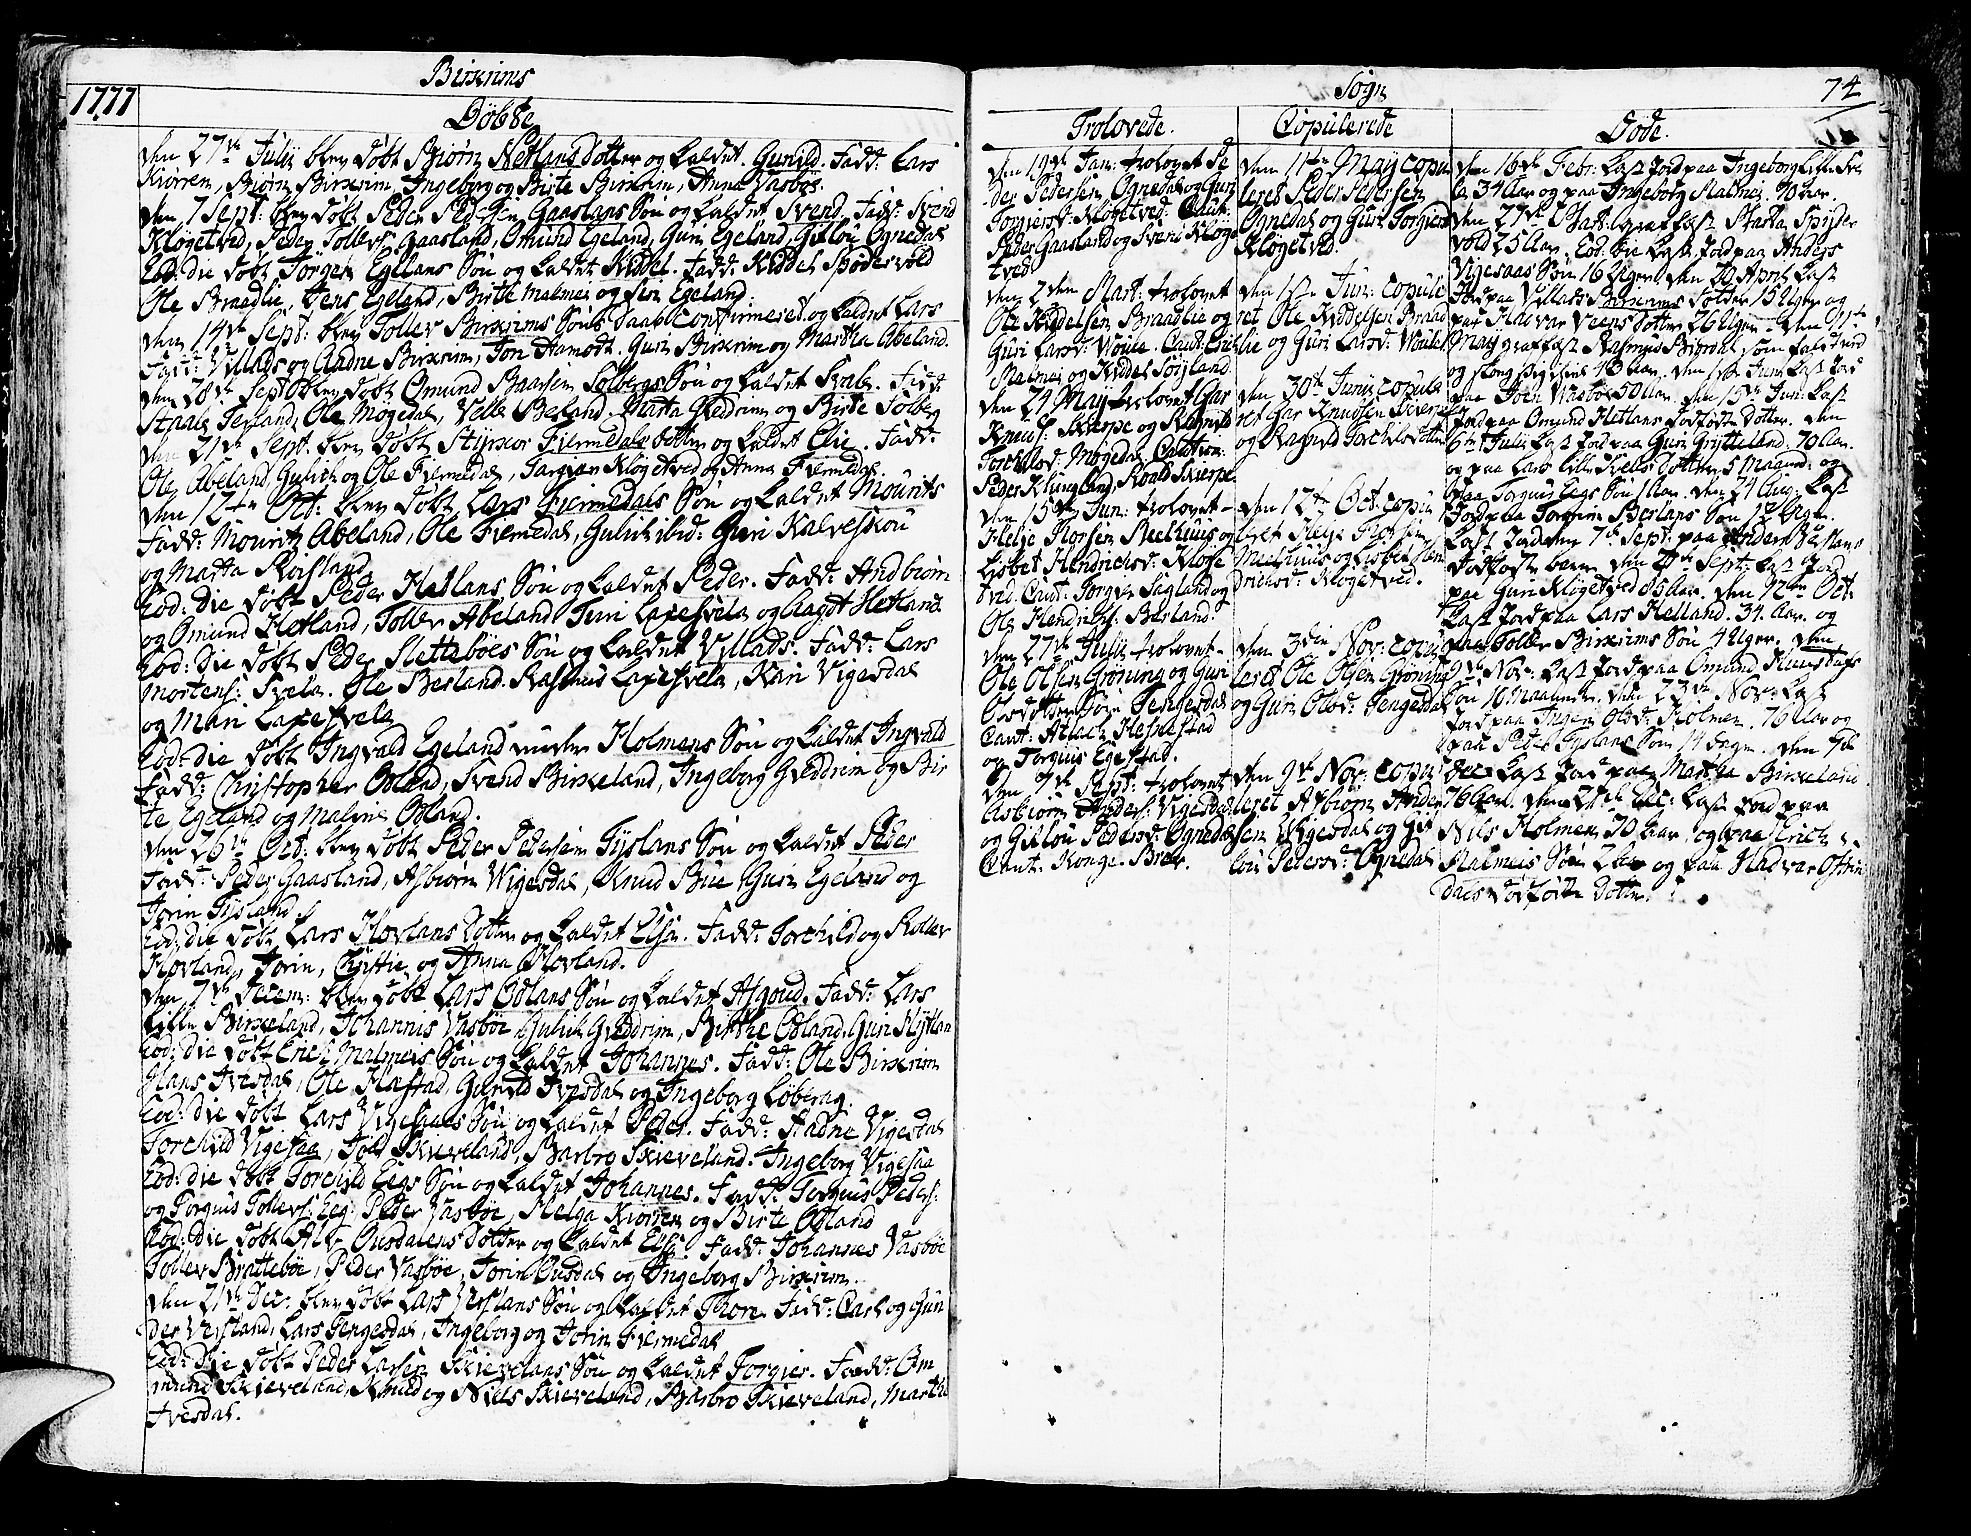 1777
Birkrims
Döbte
den 27de Julij blev döbt Biörn Netlands dotter og kaldet Gunild. Fadd: Lars
Kiörren, Biörn Birkrim, Ingeborg og Birte Birkrim, Anna Vasböe.
den 7 Sept: blev döbt Peder Pedersen Gaaslans Sön og kaldet Svend. Fadd: Svend
Klögetved, Peder Tollevs: Gaasland, Omund Egeland, Guri Egeland, Gitlou Ognedal
Eod: die döbt Törgen Egelans Sön og kaldet Kiddel. Fadd: Kiddel Spödervold
Ole Braadlie, Jens Egeland, Birte Malmei og Siri Egeland.
den 14de Sept: blev Tollev Birkrims Sön confirmeret og kaldet Lars
Fadd: Villads og Aadne Birkrim, Jon Hamodt. Guri Birkrim og Martha Abeland.
den 20de Sept: blev döbt Omund Baarsen Solbergs Sön og kaldet Fadd:
Staale Terland, Ole Mogedal, Velle Beland. Marta Gieddrim og Birte Solberg
den 21de Sept: blev döbt Styrkor Fiermedals dotter og kaldet Elie. Fadd:
Ole Abeland, Gulich og Ole Fiermedal, Torgier Klögetved og Anna Fiermedal.
den 12te Oct: blev döbt Lars Fiermedals Sön og kaldet Mourits
Fadd: Mouritz Abeland, Ole Fiermedal, Gulich ibid: Guri Kalveskou
og Marta Rosland
Eod: die döbt Peder Hetlans Sön og kaldet Peder. Fadd: Andbiörn
og Omund Hetland, Tollev Abeland, Turi Laxesvela og Aagot Hetland.
Eod: die döbt Peder Sletteböes Sön og kaldet Villads. Fadd: Lars
Mortens: Svela. Ole Berland. Rasmus Laxesvela, Kari Vigesdal
og Mari Laxesvela
Eod: die döbt Ingvald Egeland Holmens Sön og kaldet Ingvald
Fadd: Christopher Odland, Svend Birkeland, Ingeborg Gieddrim og Bir
te Egeland og Malene Odland.
den 26de Oct: blev döbt Peder Pedersen Tyslans Sön og kaldet Peder
Fadd: Peder Gaasland, Asbiörn Wigesdal, Knud Bue, Guri Egeland og
Torin Tysland.
Eod: die döbt Lars Hovlans dotter og kaldet Elsie. Fadd: Torchild og Roller
Hovland, Torin, Christie og Anna Hovland.
den 7de Decem: blev döbt Lars Odlans Sön og kaldet Asgoud. Fadd: Lars
Lille Birkeland, Johannis Vasböe, Gulich Gieddrim, Birthe Odland, Guri
Eod: die döbt Erich Malmeis Sön og kaldet Johannes. Fadd: Ole Birkrim
Hans Ivesdal, Ole Hafstad, Gunild Ivesdal og Ingeborg Löbrag.
Eod: die döbt Lars Vigesaaes Sön og kaldet Peder. Fadd: Aadne Vigesdal
Torchild Vigesaa, Toll Skieveland, Barbro Skieveland. Ingeborg Vigesaa
Eod: die döbt Torchild Eegs Sön og kaldet Johannes. Fadd: Torgius Peders:
og Torgius Tollevs: Eeg. Peder Vasböe, Helga Kiörren og Birte Odland
Eod: die döbt Alv Ousdalens dotter og kaldet Elsie. Fadd: Johannes Vasböe
Tollev Brattebö, Peder Vasböe, Torin Ousdal og Ingeborg Birkrim.
den 21de Dec: blev döbt Lars Verslans Sön og kaldet Thore. Fadd: Carl og Gun
der Versland, Lars Tengesdal, Ingeborg og Torin Fiermedal
Eod: die döbt Peder Larsen Skievelans Sön og kaldet Torgier. Fadd: Om
mund Skieveland, Knud og Niels Skieveland, Barbro Skieveland, Marthe
Ivesdal.
Sogn
74
Trolovede.
den 19de Jan: trolovet Pe
der Pedersen Ognedal og Guri
Torgiersd: Klögetved. Caut:
Peder Gaasland og Svend Klöge
tved.
den 2den Mart: trolovet
Ole Kiddelsen Braadlie og
Guri Larsd: Wouie. Caut: Erich
Malmei og Kiddel Soyland
den 24 Maij trolovet Gar
Knuds: Skierpe og Ragnild
Torchelsd: Mögedal Caution:
Peder Klungland, Roald Skierpe.
den 15de Jun: trolovet
Helje Thorsen Meelhuus og
Lisbet Hendrichsd: Kloge
tved. Caut: Torgier Sagland og
Ole Hendrichs: Berland.
den 27de Julij trolovet
Ole Olsen Gröning og Guri
Olsdotter Tengesdal
Caut: Atlach Hesnestad
og Torgius Egestad.
den 7de Sept: trolovet
Asbiörn Anders: Vigesdal
og Gitlou Pedersd: Ognedal
Caut: Konge-Brev.
Copulerede
den 11te Maij copu
leret Peder Pedersen
Ognedal og Guri Torgiersd:
Klögetved.
den 1ste Jun: copule
ret Ole Kiddelsen Braad
lie og Guri Larsd: Wouie
den 30de Junij copule
ret Gar Knudsen Skierpe
og Ragnild Torchelsdotter
den 12te Oct: copu
leret Helje Thorsen
Meelhuus og Lisbet Hen
drichsd: Klögetved.
den 3die Nov: copu
leret Ole Olsen Gröning
og Guri Olsd: Tengesdal
den 9de Nov: copu
leret Asbiörn Ander
sen Wigesdal og Git
lou Pedersd: Ognedal
Döde.
den 16de Febr: kast Jord paa Ingeborg Lille Sve
la 34 Aar og paa Ingeborg Malmei. 70 Aar.
den 27de Mart: graffæst Marta Spöder
vold 25 Aar. Eod: die kast Jord paa Anders
Vigesaas Sön 16 Uger. den 20 April kast
Jord paa Villads Birkrims dotter 15 Uger og
paa Halvar Veens dotter 26 Uger. den 11te
Maij graffæst Rasmus Biordal som falt ud
13 Aar. den 1ste Jun: kast Jord
paa Joen Vasböe 50 Aar. den 15de Jun: kast
Jord paa Omund Hetlans dödfödt dotter. den
6te Julij kast Jord paa Guri Grytteland. 70 Aar.
og paa Lars Lille Svelas dotter 5 Maaned: og
paa Torgius Eegs Sön 1 Aar. den 24 Aug: kast
Jord paa Torgrim Berlans Sön 12 Uger.
kast Jord den 7de Sept: paa Anders
dödfödte barn. den 21de Sept: kast Jord
paa Guri Klögetved 85 Aar. den 12te Oct:
kast Jord paa Lars Hetland. 34 Aar. og
paa Tollev Birkrims Sön 4 Uger. den
9de Nov: kast Jord paa Omund
Sön 16 Maaneder. den 23de Nov: kast
Jord paa Inger Olsd: Holmen. 76 Aar og
paa Peder Tyslans Sön 14 dage. den 7de
Dec: kast Jord paa Martha Birkeland
76 Aar. den 21de Dec: kast Jord paa
Nils Holmen 70 Aar, og paa Erich
Malmeis Sön og paa Halvar Ostrin
dals dödfödte dotter.